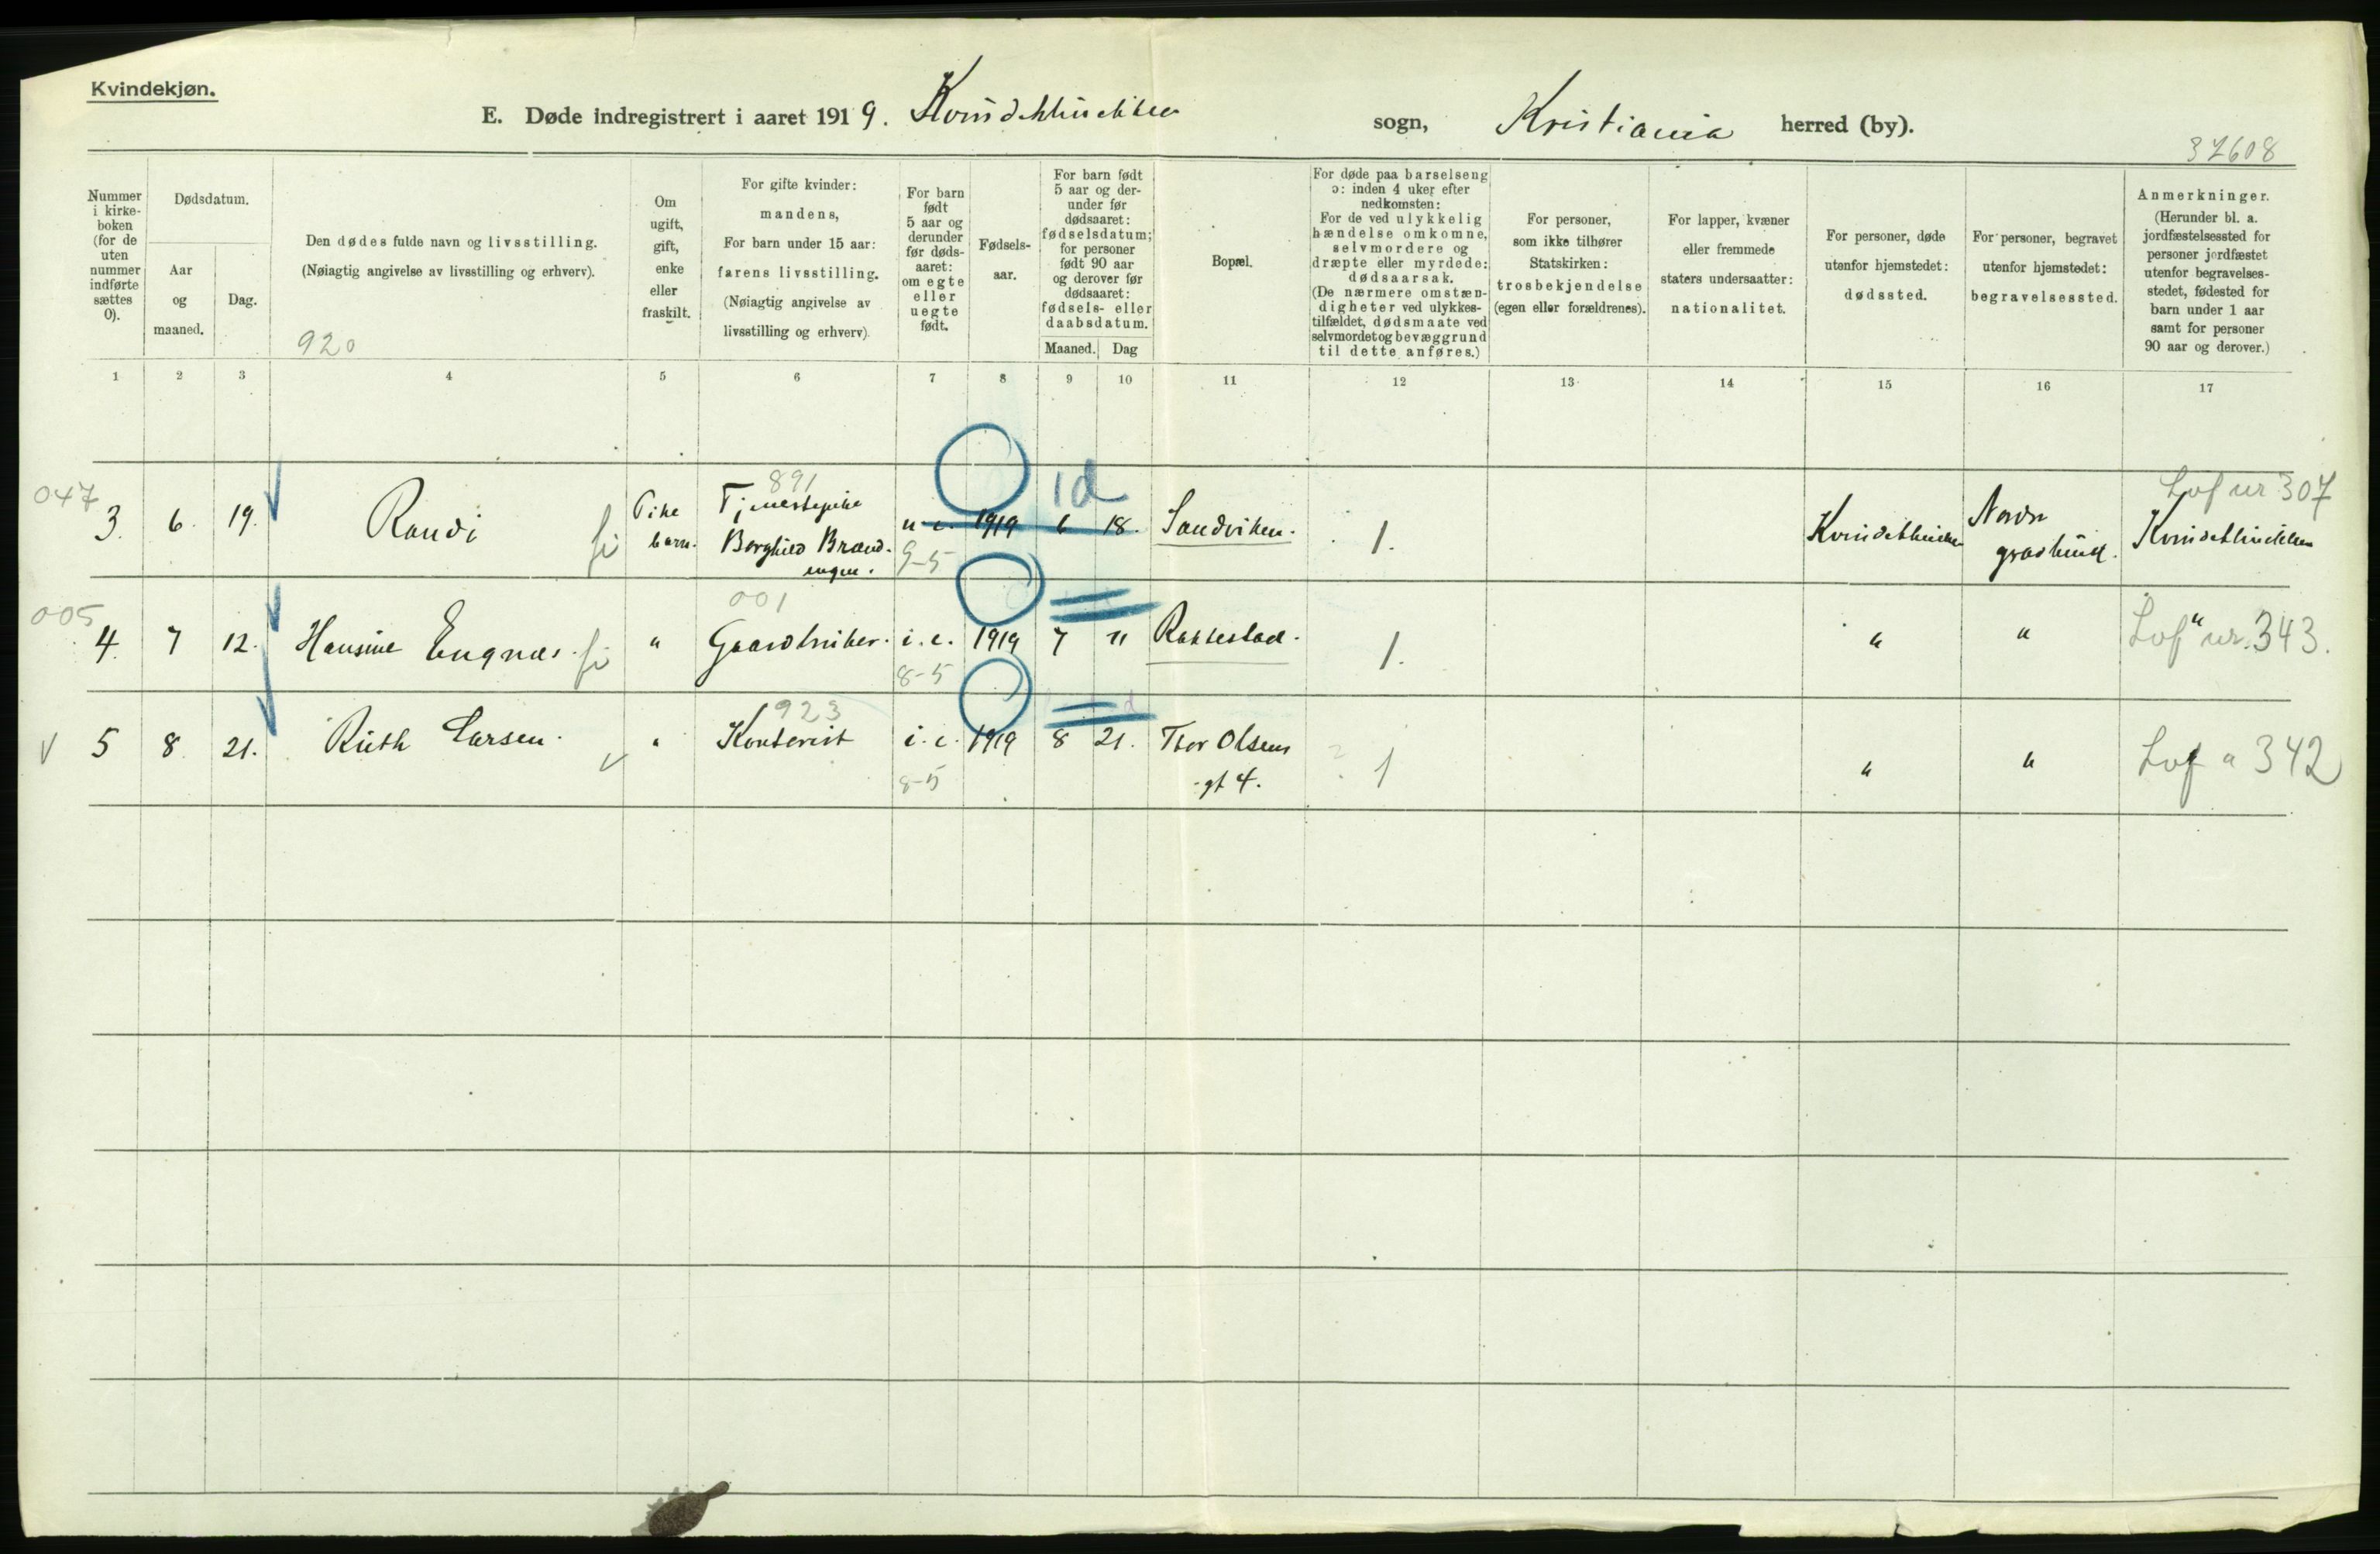 Kvindekjøn.
E. Døde indregistrert i aaret 1919. Kvindeklinikken sogn, Kristiania herred (by).
37608
Nummer i kirke-boken (for de uten nummer indførte sættes 0).
Dødsdatum.
Aar og maaned.
Dag.
Den dødes fulde navn og livsstilling.
(Nøiagtig angivelse av livsstilling og erhverv).
920
Om ugift, gift, enke eller fraskilt.
For gifte kvinder:
mandens,
For barn under 15 aar:
farens livsstilling.
(Nøiagtig angivelse av
livsstilling og erhverv).
For barn født 5 aar og derunder før døds-aaret: om egte eller uegte født.
Fødsels-aar.
For barn født
5 aar og der-
under før
dødsaaret:
fødselsdatum;
for personer
født 90 aar
og derover før
dødsaaret:
fødsels- eller
daabsdatum.
Maaned. Dag
Bopæl.
For døde paa barselseng
ɔ: inden 4 uker efter
nedkomsten:
For de ved ulykkelig
hændelse omkomne,
selvmordere og
dræpte eller myrdede:
dødsaarsak.
(De nærmere omstæn-
digheter ved ulykkes-
tilfældet, dødsmaate ved
selvmordet og bevæggrund
til dette anføres.)
For personer,
som ikke tilhører
Statskirken:
trosbekjendelse
(egen eller forældrenes).
For lapper, kvæner
eller fremmede
staters undersaatter:
nationalitet.
For personer, døde
utenfor hjemstedet:
dødssted.
For personer, begravet
utenfor hjemstedet:
begravelsessted.
Anmerkninger.
(Herunder bl. a.
jordfæstelsessted for
personer jordfæstet
utenfor begravelses-
stedet, fødested for
barn under 1 aar
samt for personer
90 aar og derover.)
1 2 3 4 5 6 7 8 9 10 11 12 13 14 15 16 17
047 891 1d Lof nr 307
3. 6. 19. Randi Pike Tjenestepike u.e. 1919 6 18. Sandviken. 1. Kvindeklinikken Nordre Kvindeklinikken
barn. Borghild Brand- 9-5 gravlund.
engen.
005 001
4. 7 12. Hansine Engnæs " Gaardbruker. i.e. 1919 7 11 Rakkestad. 1. " " " Lof nr. 343.
8-5
923
5 8. 21. Ruth Larsen. " Kontorist i.e. 1919 8 21. Thor Olsens 1 " " Lof " 342
8-5 gt 4.